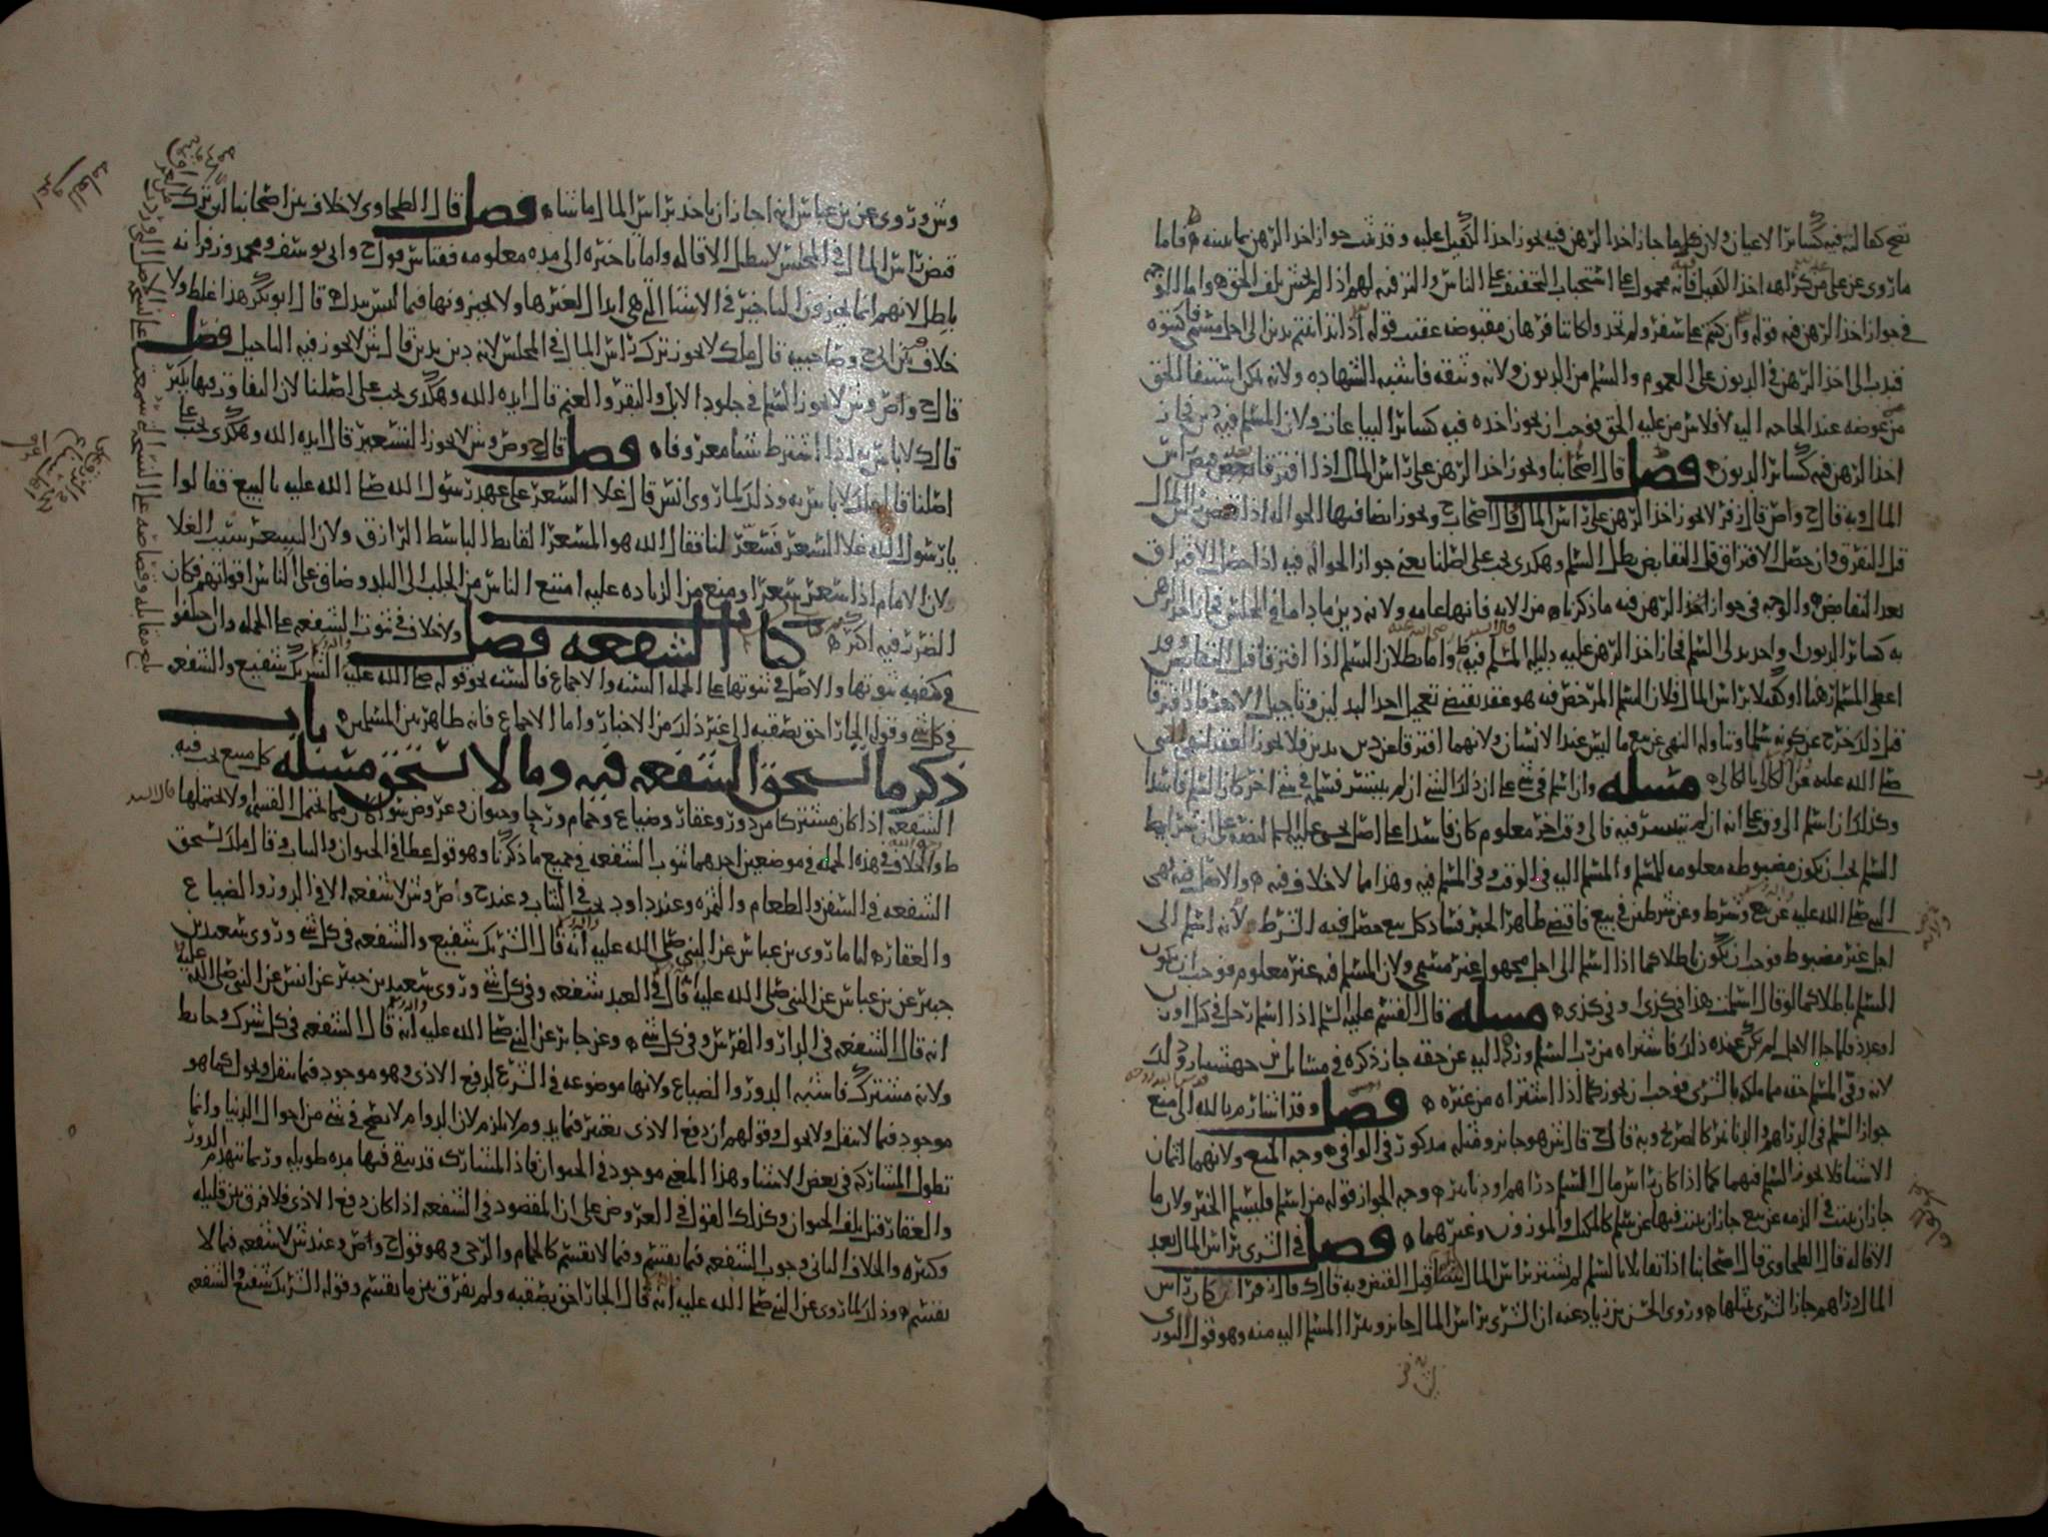 تصح كفالته فيه كسائر الاعيان ولان كلما جاز اخذ الرهن فيه يجوز اخذ الكفيل عليه وقد ثبت جواز اخذ الرهن بما بينته فاما
ما روي عن علي من كراهه اخذ الكفيل فانه محمول على استحباب التخفيف على الناس والترفيه لهم اذا لم يخش تلف الحق واما الوجه
في جواز اخذ الرهن فيه قوله وان كنتم على سفر ولم تجدوا كاتبا فرهان مقبوضه عقيب قوله اذا تداينتم بدين الى اجل مسمى فاكتبوه
فندب الى اخذ الرهن في الديون على العموم والسلم من الديون ولانه وثيقه فاشبه الشهاده ولانه يمكن استيفا الحق
من عوضه عند الحاجه اليه لافلاس من عليه الحق فوجب ان يجوز اخذه فيه كسائر البياعات ولان المسلم فيه دين فجاز
اخذ الرهن فيه كسائر الديون فصل قال اصحابنا ويجوز اخذ الرهن على راس المال اذا افترقا بعد قبض راس
المال وبه قال ح واص قال زفر لا يجوز اخذ الرهن على راس المال قال اصحاب ح ويجوز ايضا فيها الحواله اذا قبض راس المال
قبل التفرق وان حصل الافتراق قبل التقابض بطل السلم وهكذى يجب على اصلنا يعني جواز الحواله فيه اذا حصل الافتراق
بعد التقابض والوجه في جواز اخذ الرهن فيه ما ذكرناه من الايه فانها عامه ولانه دين ما داما في المجلس فجاز اخذ الرهن
به كسائر الديون واحد بدلي السلم فجاز اخذ الرهن عليه دليله المسلم فيه واما بطلان السلم اذا افترقا قبل التقابض وقد
اعطى المسلم رهنا او كفيلا براس المال فلان السلم المرخص فيه هو عقد يقتضي تعجيل احد البدلين وتاجيل الاخر فاذا افترقا
قبل ذلك خرج عن كونه سلما وتناوله النهي عن بيع ما ليس عند الانسان ولانهما افترقا عن دين بدين فلا يجوز العقد لنهي النبي
صلى الله عليه عن الكالئ بالكالئ مسله وان اسلم في شي على ان ذلك الشي ان لم يتيسر فسلم في شي اخر كان السلم فاسدا
وكذلك ان اسلم الى وقت على انه ان لم يتيسر فيه فالى وقت اخر معلوم كان فاسدا على اصل يحيى عليه السلم لنصه على ان شرايط
السلم يجب ان تكون مضبوطه معلومه للمسلم والمسلم اليه في الوقت وفي المسلم فيه وهذا مما لا خلاف فيه والاصل فيه نهي
النبي صلى الله عليه عن بيع وشرط وعن شرطين في بيع فاقتضى ظاهر الخبر فساد كل بيع حصل فيه الشرط لانه اسلم الى
اجل غير مضبوط فوجب ان يكون باطلا كما اذا اسلم الى اجل مجهول غير مسمى ولان المسلم فيه غير معلوم فوجب ان يكون
السلم باطلا كما لو قال اسلمت هذا في كذى او في كذى مسله قال القسم عليه السلم اذا اسلم رجل في
فلما جا الاجل لم يكن عنده ذلك فاشتراه من رب السلم ورده اليه عن حقه جاز ذكره في مسائل
لانه وفى المسلم حقه مما ملكه بالشرى فوجب ان يجوز كما اذا اشتراه من غيره فصل وقد اشار م بالله الى منع
جواز السلم في الدراهم والدنانير كالصريح وبه قال ح قال ش هو جائز ومثله مذكور في الوافي وجه المنع ولانهما اثمان
الاشيا فلا يجوز السلم فيهما كما اذا كان راس مال السلم دراهم او دنانير وجه الجواز قوله من اسلم فليسلم الخبر ولان ما
جاز ان يثبت في الذمه عن بيع جاز ان يثبت فيها عن سلم كالمكيل والموزون وغيرهما فصل في الشرى براس المال بعد
الاقاله قال الطحاوي قال اصحابنا اذا تقايلا بالسلم لم يشتر براس المال شيا قبل القبض وبه قال ك قال زفر ان كان راس
المال دراهم جاز الشرى بمثلها وروى الحسن بن زياد عنه ان الشرى براس المال جائز ويبرا المسلم اليه منه وهو قول الثوري
وش وروي عن بن عباس انه اجاز ان ياخذ براس المال ما شاه فصل قال الطحاوي لا خلاف بين اصحابنا ان ترك
قبض راس المال في المجلس لا يبطل الاقاله واما تاخيره الى مده معلومه فقياس قول ح وابي يوسف ومحمد وزفر انه
باطل لانهم انما يجيزون التاخير في الاشيا التي هي ابدال لغيرها ولا يجيزونها فيما ليس ببدل قال ابو بكر هذا غلط ولا
خلاف بين ابي ح وصاحبيه قال ملك لا يجوز ترك راس المال في المجلس لانه دين بدين قال ش لا يجوز فيه التاجيل فصل
قال ح واص وش لا يجوز السلم في جلود الابل والبقر والغنم قال ايده الله وهكذى يجب على اصلنا لان التفاوت فيها يكثر
قال ك لا باس به اذا اشترط شيا معروفاه فصل قال ح وص وش لا يجوز التسعير قال ايده الله وهكذى يجب على
اصلنا قال ملك لا باس به وذلك لما روى انس قال غلا السعر على عهد رسول الله صلى الله عليه بالبيع فقالوا
يا رسول الله غلا السعر فسعر لنا فقال الله هو المسعر القابض الباسط الرازق ولان التسعير سبب الغلا
ولان الامام اذا سعر سعرا ومنع من الزياده عليه امتنع الناس من الجلب الى البلد وضاق على الناس اقواتهم فكان
الضرر فيه اكثره كتاب الشفعه فصل ولا خلاف في ثبوت الشفعه على الجمله وان اختلفوا
في كيفيه ثبوتها والاصل في ثبوتها على الجمله السنه والاجماع فالسنه نحو قوله صلى الله عليه الشريك شفيع والشفعه
في كل شي وقوله الجار احق بصقبه الى غير ذلك من الاخبار واما الاجماع فانه ظاهر بين المسلمين باب
ذكر ما تستحق الشفعه فيه وما لا تستحق مسله كل مبيع تجب فيه
الشفعه اذا كان مشتركا من دور وعقار وضياع وحمام ورحا وحيوان وعروض سوا كان مما يحتمل القسمه او لا يحتملها قال السيد
ط والخلاف في هذه الجمله في موضعين احدهما ثبوت الشفعه في جميع ما ذكرنا وهو قول عطا في الحيوان والثياب وقال ملك تستحق
الشفعه في السفن والطعام والثمره وعند داود تجب في الثياب وعند ح واص وش لا شفعه الا في الدور والضياع
والعقاره لنا ما روى بن عباس عن النبي صلى الله عليه انه قال الشريك شفيع والشفعه في كل شي وروى سعيد بن
جبير عن بن عباس عن النبي صلى الله عليه انه قال في العبد شفعه وفي كل شي وروى سعيد بن جبير عن انس عن النبي صلى الله عليه
انه قال الشفعه في الدار والفرس وفي كل شي وعن جابر عن النبي صلى الله عليه انه قال الشفعه في كل شرك وحايط
ولانه مشترك فاشبه الدور والضياع ولانها موضوعه في الشرع لدفع الاذى وهو موجود فيما ينقل ويحول كما هو
موجود فيما لا ينقل ولا يحول وقولهم ان دفع الاذى يعتبر فيما يدوم لا يلزم لان الدوام لا يصح في شي من احوال الدنيا وانما
تطول المشاركه في بعض الاشيا وهذا المعنى موجود في الحيوان فاذا المشاركه قد تبقى فيها مده طويله وربما تنهدم الدور
والعقار قبل تلف الحيوان وكذلك القول في العروض على ان المقصود في الشفعه اذا كان دفع الاذى فلا فرق بين قليله
وكثيره والخلاف الثاني وجوب الشفعه فيما يقسم وفيما لا يقسم كالحمام والرحى وهو قول ح واص وعند ش لا شفعه فيما لا
يقسم وذلك لما روي عن النبي صلى الله عليه انه قال الجار احق بصقبه ولم يفرق بين ما يقسم وقوله الشريك شفيع والشفعه